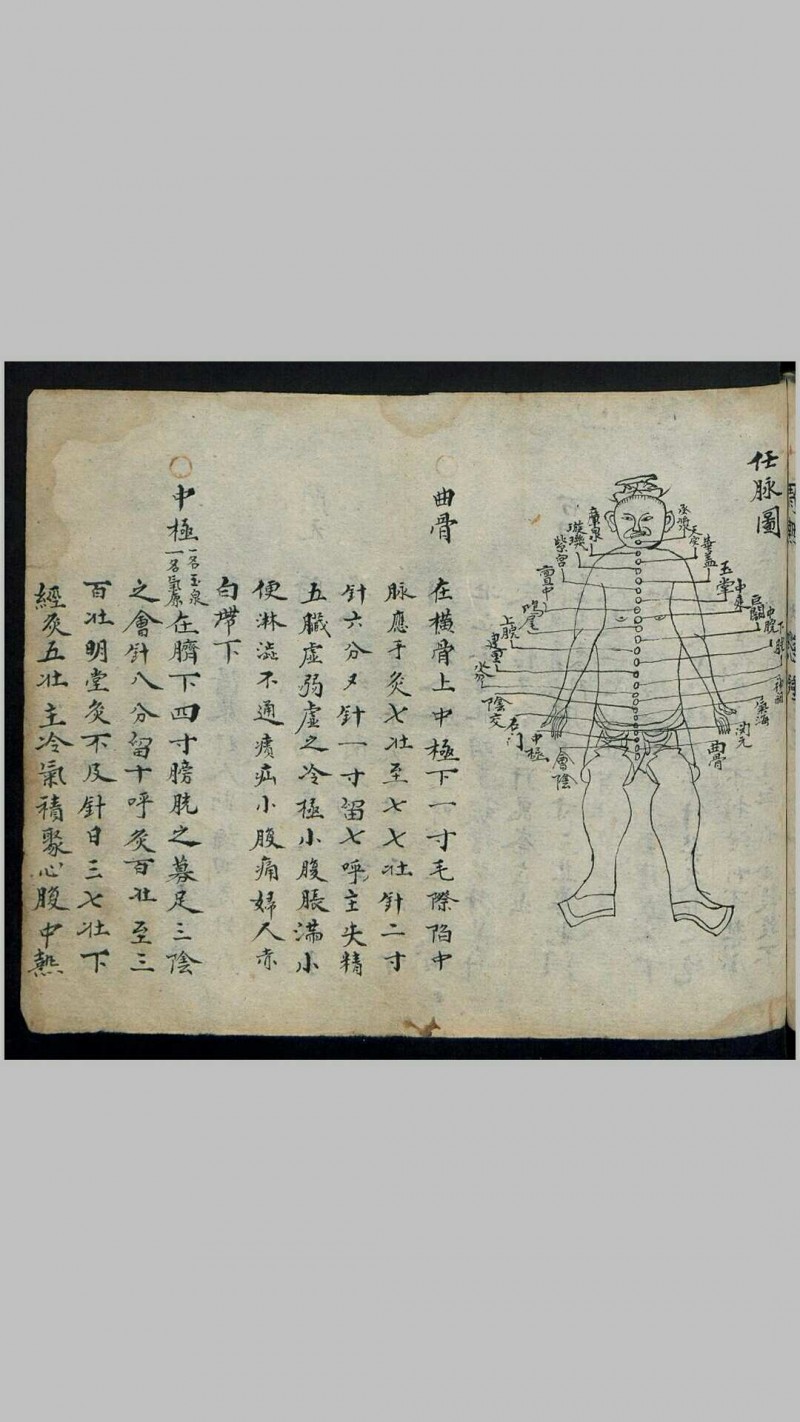 任脉圖
承漿
天突
華盖
玉堂
中庭
巨闕
中脘
下脘
神闕
氣海
関元
曲骨
廉泉
璇璣
紫宮
膻中
鳩尾
上脘
建里
水分
陰交
石门
中極
會陰
曲骨
在横骨上中極下一寸毛際陷中
脉應手灸七壮至七七壮針二寸
针六分又针一寸留七呼主失精
五臓虚弱虚之冷極小腹脹满小
便淋澁不通㿉疝小腹痛婦人赤
白帶下
中極一名玉泉一名氣原在臍下四寸膀胱之募足三陰
之會針八分留十呼灸百壮至三
百壮明堂灸不及針日三七壮下
經灸五壮主冷氣積聚心腹中熱